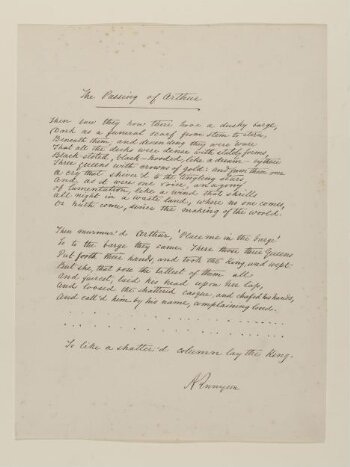 The Passing of Arthur
Then saw they how there hove a dusky barge,
Dark as a funeral scarf from stem to stern,
Beneath them; and descending they were ware
That all the decks were dense with stately forms,
Black-stoled, black-hooded, like a dream — by these
Three Queens with crowns of gold: and from them rose
A cry that shiver'd to the tingling stars
And, as it were one voice, an agony
Of lamentation, like a wind that shrills
All night in a waste land, where no one comes,
Or hath come, since the making of the world.
Then murmur'd Arthur, 'Place me in the barge'
So to the barge they came. There those three Queens
Put forth their hands, and took the King, and wept.
But she, that rose the tallest of them all
And fairest, laid his head upon her lap,
And loosed the shatter'd casque, and chafed his hands,
And call'd him by his name, complaining loud.
. . . . . . . . . . . . . .
. . . . . . . . . . . . . .
So like a shatter'd column lay the King.
A Tennyson